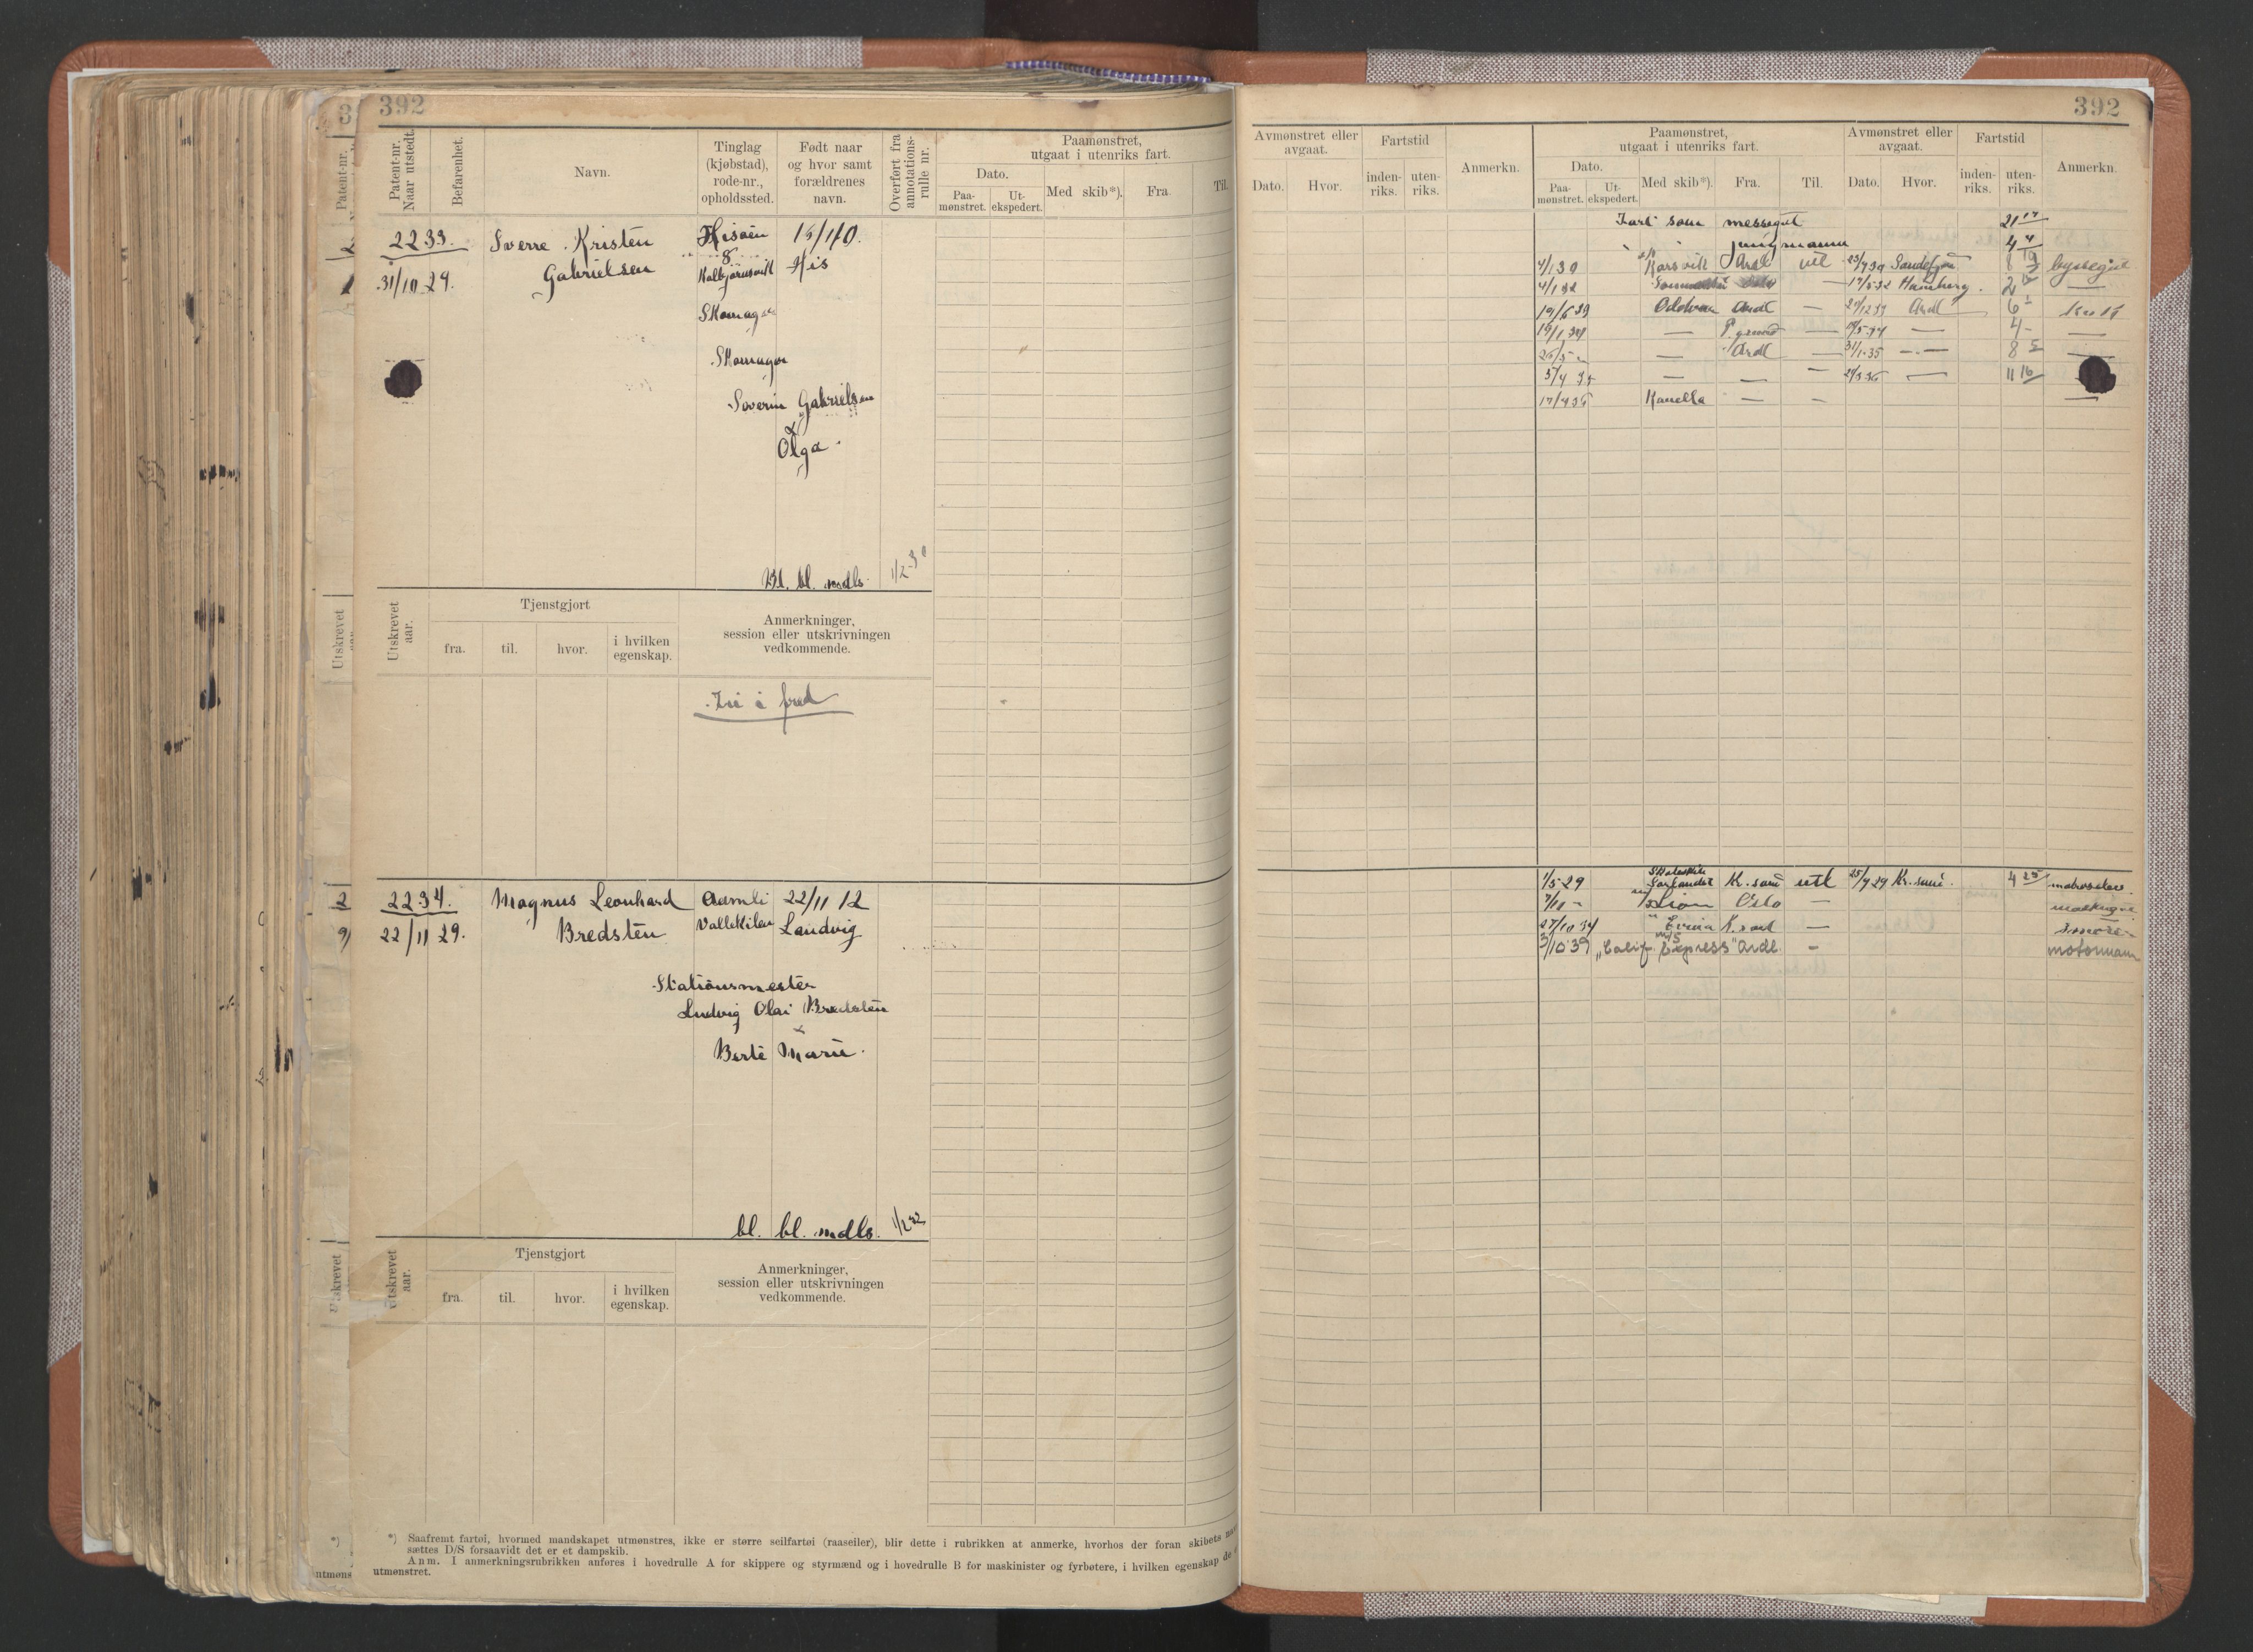 392
Patent-nr. Naar utstedt.
Befarenhet.
Navn.
Tinglag (kjøbstad), rode-nr., opholdssted.
Født naar og hvor samt forældrenes navn.
Overført fra annotations-rulle nr.
Paamønstret, utgaat i utenriks fart.
Dato.
Paa-mønstret.
Ut-ekspedert.
Med skib*).
Fra.
Til.
2233. Sverre Kristen Hisøen 15/110.
8
31/10 29. Gabrielsen Kolbjørnsvik His
Skomager
Severin Gabrielsen
&
Olga
bl. bl. mdls. 1/2-30
Utskrevet aar.
Tjenstgjort
fra. til. hvor. i hvilken egenskap.
Anmerkninger, session eller utskrivningen vedkommende.
Fri i fred
2234. Magnus Leonhard Aamli 22/11 12
22/11 29. Bredsten Vallekilen Landvig
Stationsmester
Ludvig Olai Bredsten
&
Berte Marie.
bl. bl. mdls. 1/2 32
Utskrevet aar.
Tjenstgjort
fra. til. hvor. i hvilken egenskap.
Anmerkninger, session eller utskrivningen vedkommende.
*) Saafremt fartøi, hvormed mandskapet utmønstres, ikke er større seilfartøi (raaseiler), blir dette i rubrikken at anmerke, hvorhos der foran skibets
sættes D/S forsaavidt det er et dampskib.
Anm. I anmerkningsrubrikken anføres i hovedrulle A for skippere og styrmænd og i hovedrulle B for maskinister og fyrbøtere, i hvilken egenskap de
utmønstret.
392
Avmønstret eller avgaat.
Dato. Hvor.
Fartstid
inden-riks. uten-riks.
Anmerkn.
Paamønstret, utgaat i utenriks fart.
Dato.
Paa-mønstret. Ut-ekspedert.
Med skib*). Fra. Til.
Avmønstret eller avgaat.
Dato. Hvor.
Fartstid
inden-riks. uten-riks.
Anmerkn.
Fart som messegut 21 17
" " jungmann 4 4
4/1 30 Korsvik Ardl utl 23/9 30 Sandefj. 8 19 byssegut
4/1 32 — 17/5 32 Hamburg. 2 —
19/6 33 Oddvar Ardl — 27/12 33 Ardl 6 kokk
19/1 34 — P.grund — /5 34 — 4 — —
26/5 — — Ardl — 31/1 35 — 8 5 —
5/4 35 — — — 21/3 36 — 11 16
17/4 36 Kanella — — —
1/5 29 Skoleskibet Sørlandet Kr.sand utl 25/9 29 Kr.sand. 4 25 matroselev.
7/11 — Oslo — maskingut.
27/10 34 K.sand — smører
3/10 39 "Calif. Express" Ardl. — motormann